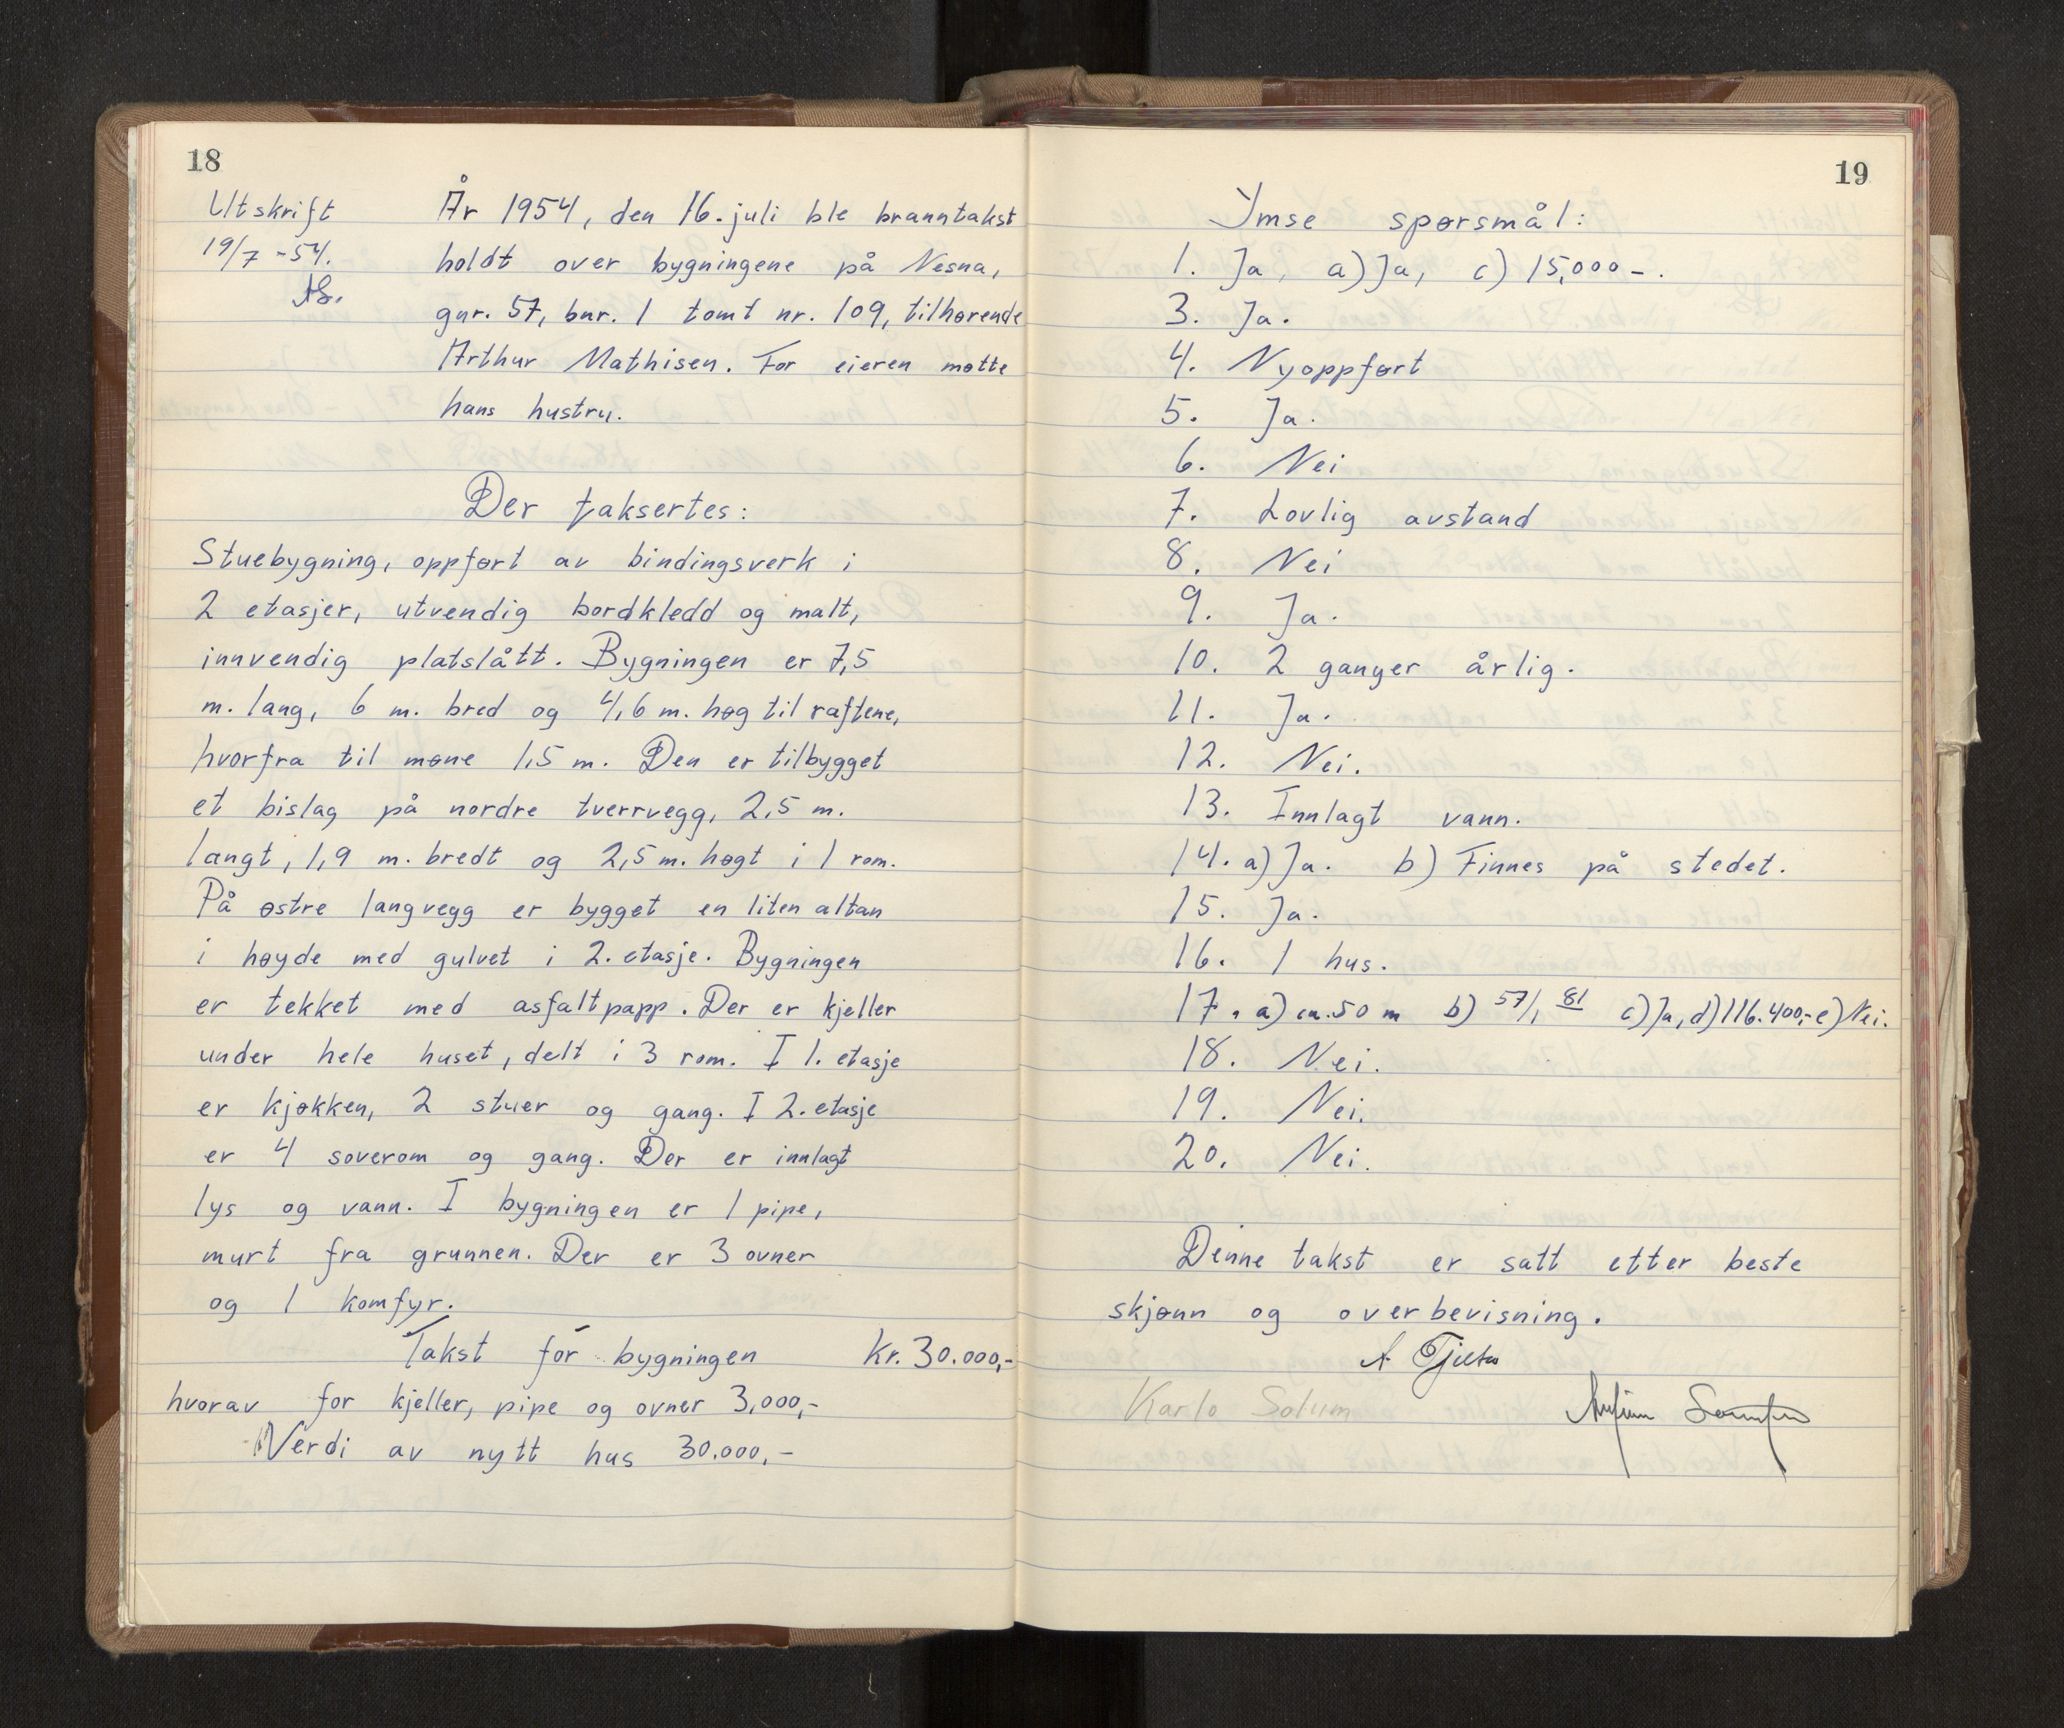 18
Utskrift
19/7 -54.
År 1954, den 16. juli ble branntakst
holdt over bygningene på Nesna,
gnr. 57, bnr. 1 tomt nr. 109, tilhørende
Arthur Mathisen. For eieren møtte
hans hustru.
Der taksertes:
Stuebygning, oppført av bindingsverk i
2 etasjer, utvendig bordkledd og malt,
innvendig platslått. Bygningen er 7,5
m. lang, 6 m. bred og 4,6 m. høg til raftene,
hvorfra til møne 1,5 m. Den er tilbygget
et bislag på nordre tverrvegg, 2,5 m.
langt, 1,9 m. bredt og 2,5 m. høgt i 1 rom.
På østre langvegg er bygget en liten altan
i høyde med gulvet i 2. etasje. Bygningen
er tekket med asfaltpapp. Der er kjeller
under hele huset, delt i 3 rom. I 1. etasje
er kjøkken, 2 stuer og gang. I 2. etasje
er 4 soverom og gang. Der er innlagt
lys og vann. I bygningen er 1 pipe,
murt fra grunnen. Der er 3 ovner
og 1 komfyr.
Takst for bygningen kr. 30.000,-
hvorav for kjeller, pipe og ovner 3.000,-
Verdi av nytt hus 30.000,-
19
Ymse spørsmål:
1. Ja, a) Ja, c) 15,000-.
3. Ja.
4. Nyoppført
5. Ja.
6. Nei
7. Lovlig avstand
8. Nei
9. Ja.
10. 2 ganger årlig.
11. Ja.
12. Nei.
13. Innlagt vann.
14. a) Ja. b) Finnes på stedet.
15. Ja.
16. 1 hus.
17. a) ca. 50 m b) 57/1, 81 c) Ja, d) 116.400,- e) Nei.
18. Nei.
19. Nei.
20. Nei.
Denne takst er satt etter beste
skjønn og overbevisning.
Karlo Solum